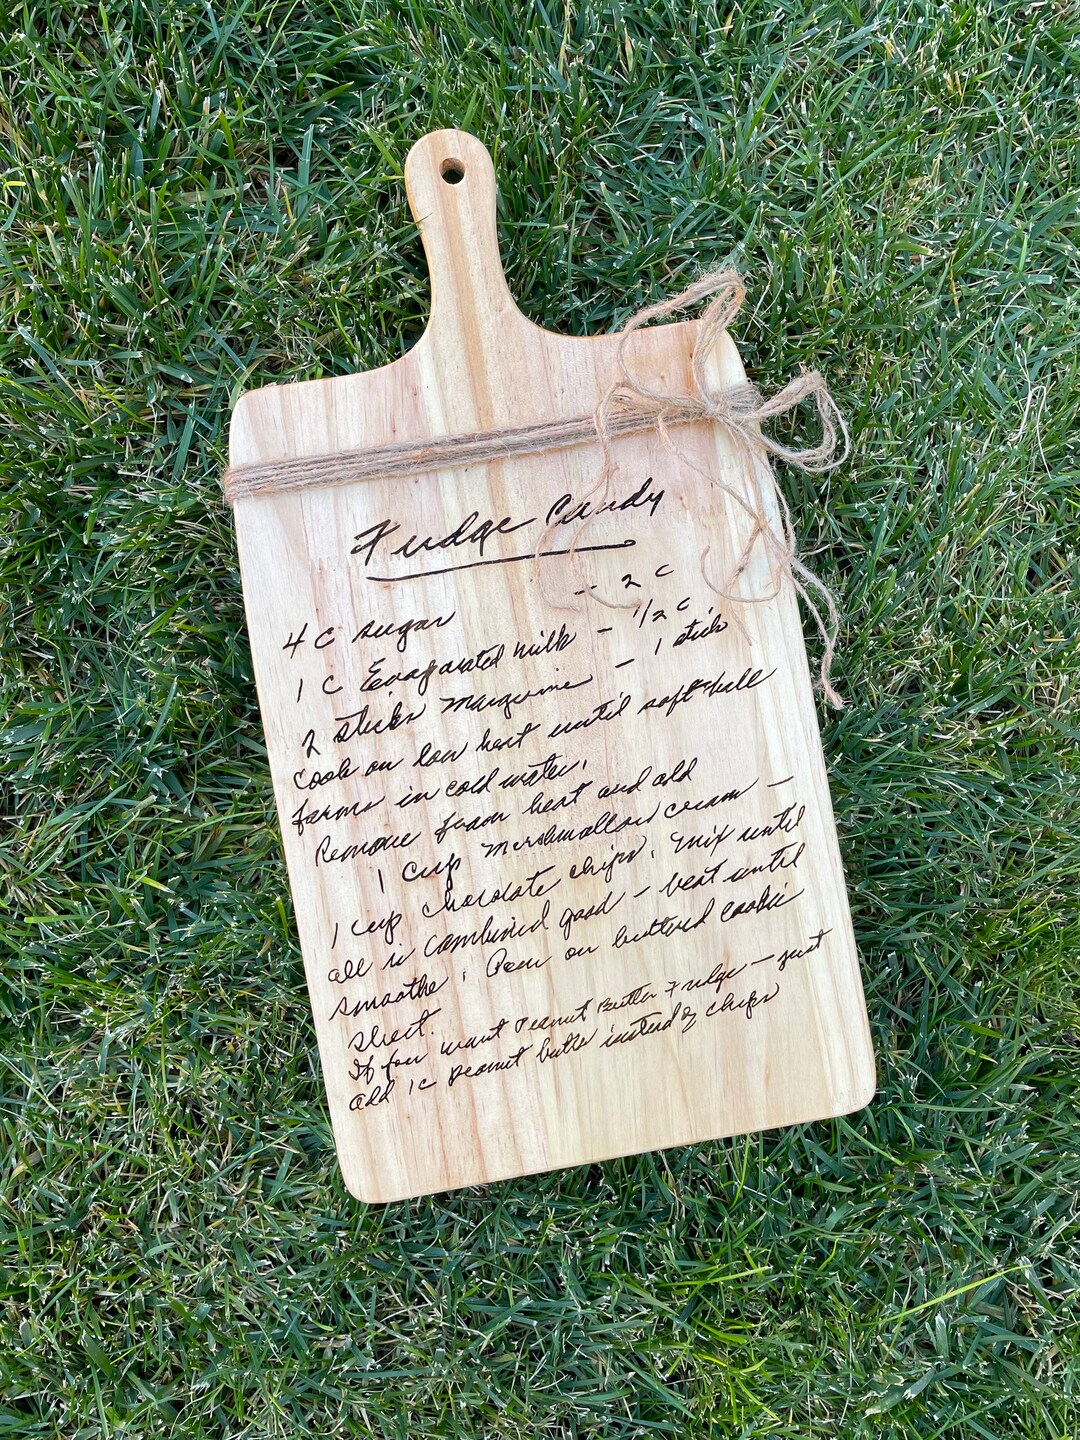 Fudge Candy
4 C sugar - 2 C
1 C Evaporated milk - 1/2 C
2 sticks Margarine - 1 stick
Cook on low heat until soft ball
forms in cold water.
Remove from heat and add
1 cup Marshmallow cream -
1 cup chocolate chips. Mix until
all is combined good - beat until
smoothe. Pour on buttered cookie
sheet.
If you want Peanut Butter Fudge - just
add 1c peanut butter instead of chips